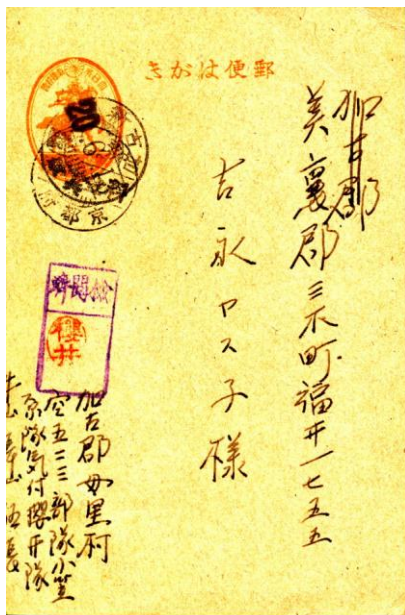 郵便はがき
加古郡
美嚢郡三木町福井一七五五
吉永ヤス子様
檢閲濟
櫻井
加古郡母里村
空五三三部隊小笠
原隊気付櫻井隊